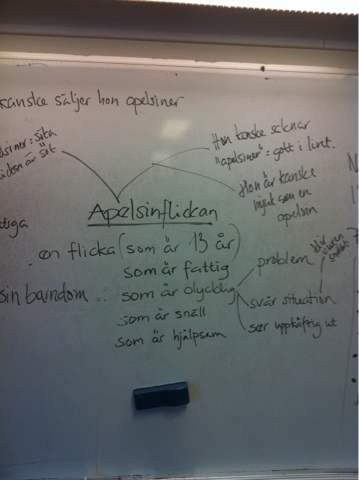 kanske säljer hon apelsiner
siner = söta
flickan är söt
Hon kanske saknar
"apelsiner" = gott i livet.
Hon är kanske
mjuk som en
apelsin
Apelsinflickan
tiga
en flicka (som är 13 år)
som är fattig
sin barndom
som är olycklig
som är snäll
som är hjälpsam
problem
svår situation
ser uppkäftig ut
blir